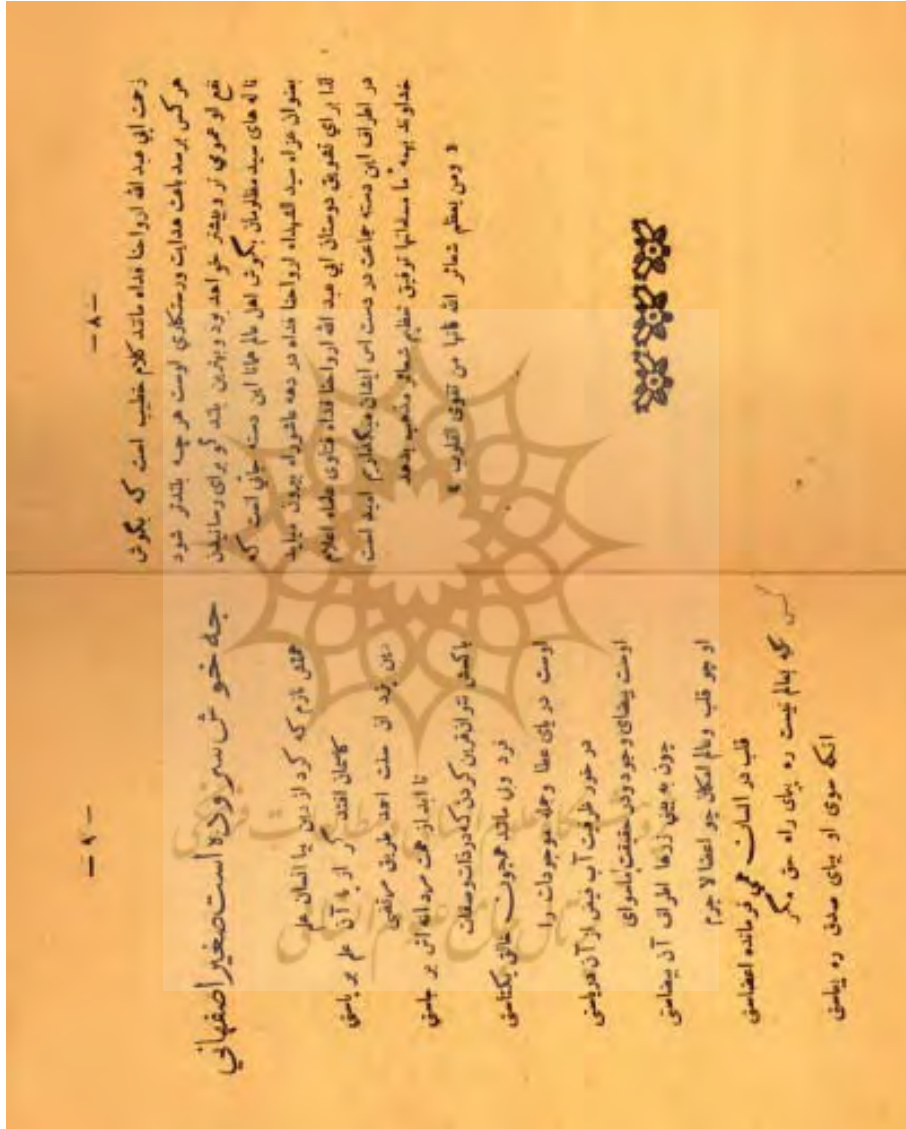 — ۸ —
زحمت ابي عبد الله ارواحنا فداه مانند كلام خطيب است كه بگوش
هر كس برسد باعث هدايت ورستكاري اوست هر چه بلندتر شود
نفع او عمومي تر و بيشتر خواهد بود و بهترين بلند گو براى رسانيدن
ناله هاى سيد مظلومان بگوش اهل عالم همانا اين دسته جاتي است كه
بعنوان عزاء سيد الشهداء ارواحنا فداه در دهه عاشوراء بيرون ميايد
لذا براي تشويق دوستان ابي عبد الله ارواحنا فداه فتاوى علماء اعلام
در اطراف اين دسته جماعت در دست اس ايشان ميگذارم اميد است
خداوند بهمه ما مسلمانها توفيق تعظيم شعائر مذهب بدهد
« ومن يعظم شعائر الله فانها من تقوى القلوب »
— ۹ —
چه خوش سروده است صغير اصفهاني
همتش نازم كه كرد از دين بپا انسان علم
كاسمان افتد گر از پا آن علم بر پاستى
دين بود از سنت احمد طريق مرتضى
تا ابد از همت مردانه اش بر جاستي
باكسش نتوان قرين كردن كه در ذات وصفات
فرد ولى مانند همچون خالق يكتاستى
اوست درياى عطا وجمله موجودات را
در خور ظرفيت آب فيض از آن درياستى
اوست بيضاى وجود ودر حقيقت ماسواى
چون به بيني ذرها اطراف آن بيضاستى
او چو قلب وعالم امكان چو اعضا لا جرم
قلب در انسان همي فرمانده اعضاستى
كس بعالم نيست ره پياى راه حق مگر
انكه سوى او بپاى صدق ره پياستى